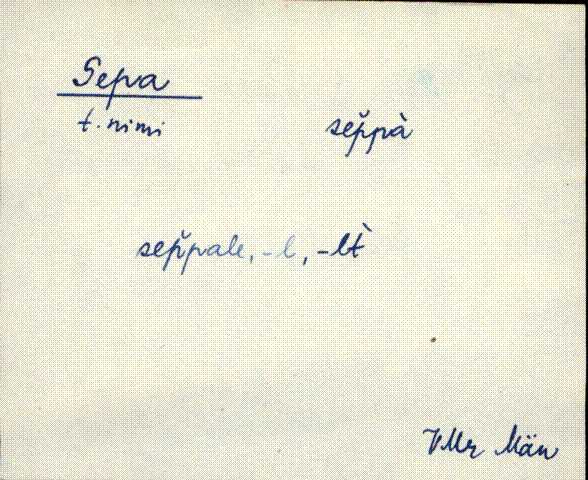 Sepa
t. nimi sep̆pà
sep̆pale, -l, -lt̀
VMr Män